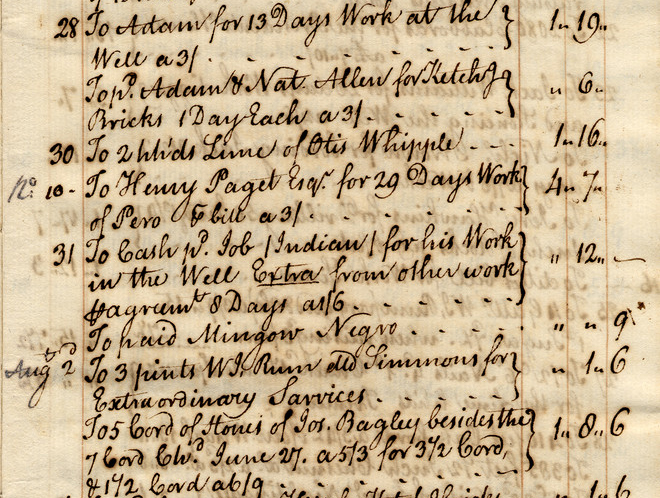 28 To Adam for 13 Days Work at the } 1„ 19„
Well a 3/
To pd. Adam & Nat. Allen for Ketchg } „ 6„
Bricks 1 Day Each a 3/
30 To 2 hhds Lime of Otis Whipple 1„ 16„
No. 10 - To Henry Paget Esqr. for 29 Days Work } 4„ 7„
of Pero & bill a 3/
31 To Cash pd. Job /Indian/ for his Work } „ 12„
in the Well Extra from other work
agreemt 8 Days a 1/6
To paid Mingow Negro „ „ 9
Augt 2d To 3 pints W I. Rum dld Simmons for } „ 1„ 6
Extraordinary Sarvices
To 5 Cord of Stones of Jos. Bagley besides the } 1„ 8„ 6
7 Cord June 27. a 5/3 for 3 1/2 Cord,
& 1 1/2 Cord a 6/9